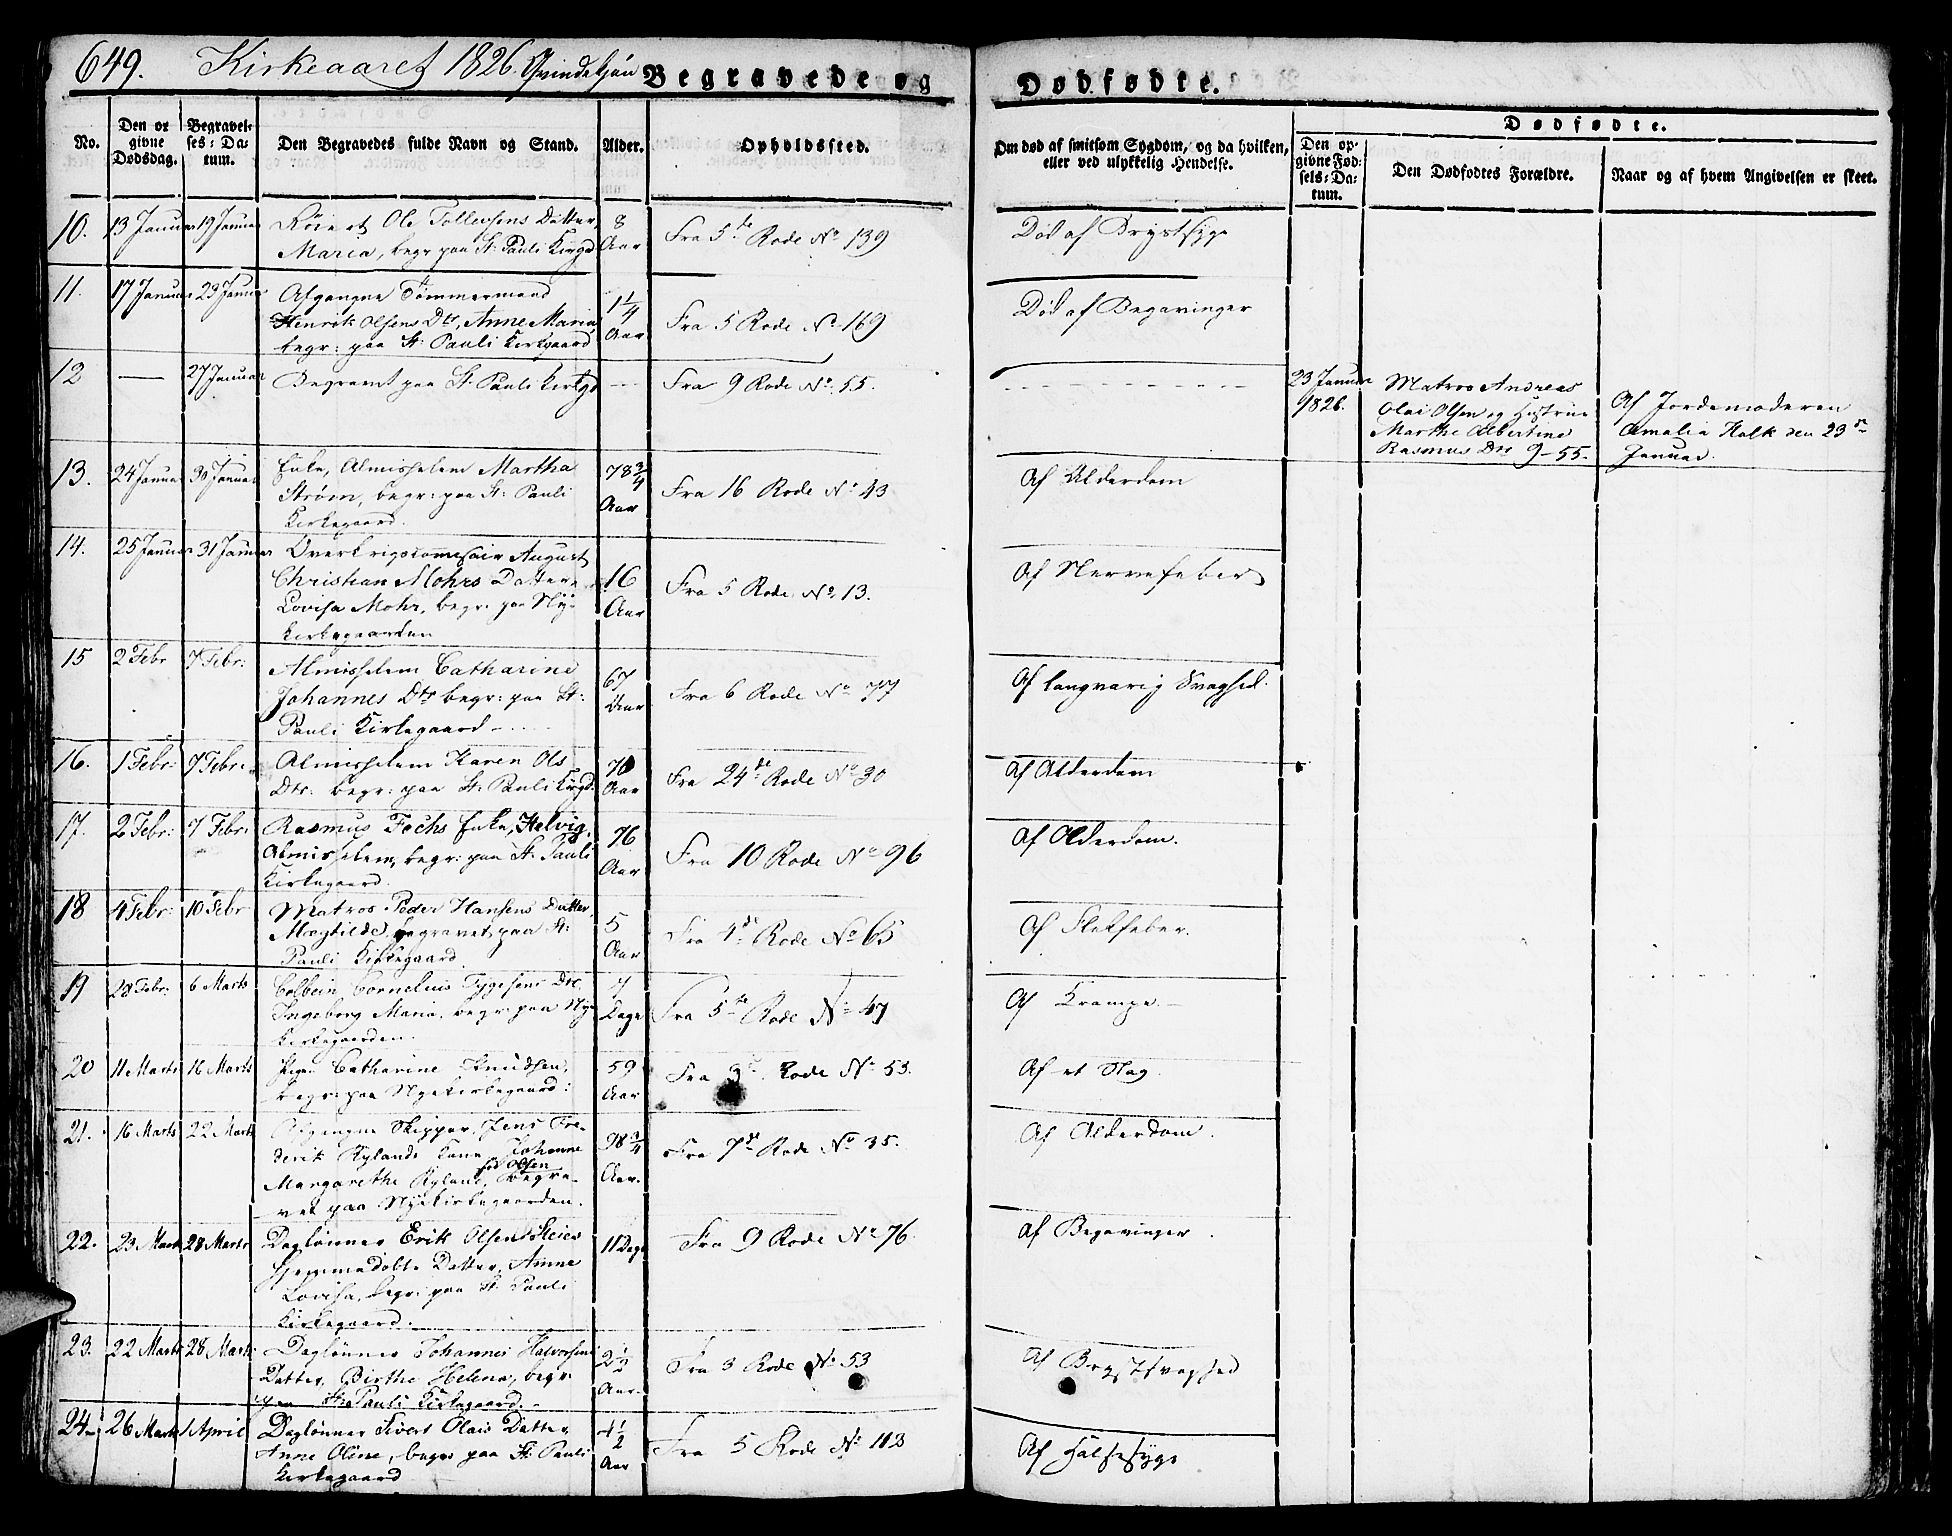 649. Kirkeaaret 1826. Qvindekjön Begravede og Dødfødte.
No.
Den op
givne
Dødsdag.
Begravel-
ses: Da-
tum.
Den Begravedes fulde Navn og Stand.
Alder.
Opholdssted.
Om død af smitsom Sygdom, og da hvilken,
eller ved ulykkelig Hendelse.
Dødfødte.
Den op-
givne Fød-
sels: Da-
tum.
Den Dødfødtes Forældre.
Naar og af hvem Angivelsen er skeet.
10. 13 Januar 19 Januar Ole Tollevsens Datter 8
Maria, begr: paa St: Pauli Kirgd Aar Fra 5te Rode No 139 Død af Brystsyge
11. 17 Januar 23 Januar Afgangne Tömmermand 1 1/4
Henrik Olsens Dtr, Anne Maria,
begr: paa St: Pauli Kirkgaard Aar Fra 5 Rode No 169 Død af Begavinger
12 — 27 Januar Begravet paa St: Pauli Kirkgd — Fra 9 Rode No 55.
23 Januar
1826.
Matros Andreas
Olai Olsen og Hustrue
Marthe Albertine
Rasmus Dtr 9-55.
Af Jordemoderen
Amalia Holk den 23de
Januar.
13. 24 Januar 30 Januar Enke, Almisselem Martha 78 3/4
Strøm, begr: paa St: Pauli
Kirkegaard. Aar Fra 16 Rode No 43 Af Alderdom
14. 25 Januar 31 Januar Overkrigscomissair August
Christian Mohrs Datter 16
Lovisa Mohr, begr: paa Nye
Kirkegaarden Aar Fra 5 Rode No 13. Af Nervefeber
15 2 Febr 7 Febr: Almisselem Catharine
Johannes Dtr begr: paa St: 67
Pauli Kirkegaard Aar Fra 6 Rode No 77 Af langvarig Svaghed.
16. 1 Febr: 7 Febr: Almisselem Karen Ols 70
Dtr: begr: paa St: Pauli Kirgd. Aar Fra 24de Rode No 30 Af Alderdom
17. 2 Febr: 7 Febr: Rasmus Fochs Enke, Helvig, 76
Almisselem, begr: paa St: Pauli
Kirkegaard. Aar Fra 10 Rode No 96 Af Alderdom.
18 4 Febr: 10 Febr Matros Peder Hansens Datter,
Magtilde, begravet paa St: 5
Pauli Kirkegaard. Aar Fra 4de Rode No 65 Af Flekfeber.
19 28 Febr: 6 Marts Colbein Cornelius Tygesens Dtr 7
Ingeborg Mana, begr: paa Nye
Kirkegaarden. Dage Fra 5te Rode No 47 Af Krampe.
20 11 Marts 16 Marts Pigen Catharine Knudsen, 59
begr: paa Nyekirkegaard: Aar Fra Rode No 53. Af et Slag.
21. 16 Marts 22 Marts Afgangne Skipper Jens Fre-
derik Rylands Kone, Johanne 98 3/4
fød Olsen
Margarethe Ryland, begra-
vet paa Nyekirkegaarden. Aar. Fra 7de Rode No 35. Af Alderdom.
22. 23 Marts 28 Marts Daglönner Erik Olsen 11 Dage
hjemmedøbte Datter, Anne
Lovisa, begr: paa St: Pauli
Kirkegaard. Fra 9 Rode No 76. Af Begavinger.
23. 22 Marts 28 Marts Daglønner Johannes Halvorsens 2 1/2
Datter, Birthe Helena, begr:
paa St: Pauli Kirkegaard. Aar. Fra 3 Rode No 53 Af Brystsvaghed
24 26 Marts 1 April Daglönner Sivert Olais Datter, 4 1/2
Anne Oline, begr: paa St: Pauli
Kirkegaard Aar Fra 5 Rode No 113 Af Halssyge